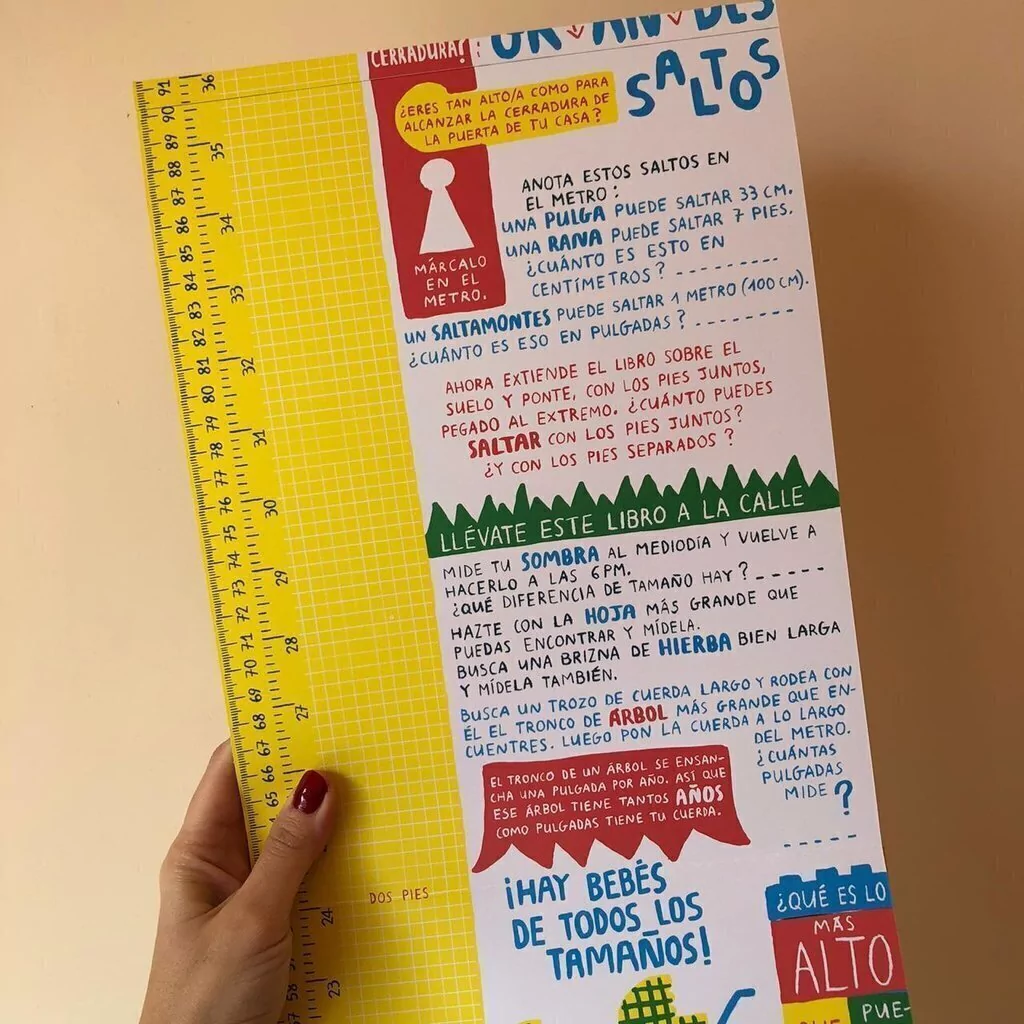 CERRADURA?
SALTOS
¿ERES TAN ALTO/A COMO PARA
ALCANZAR LA CERRADURA DE
LA PUERTA DE TU CASA?
MÁRCALO
EN EL
METRO.
ANOTA ESTOS SALTOS EN
EL METRO:
UNA PULGA PUEDE SALTAR 33 CM.
UNA RANA PUEDE SALTAR 7 PIES.
¿CUÁNTO ES ESTO EN
CENTÍMETROS? _ _ _ _ _ _ _ _
UN SALTAMONTES PUEDE SALTAR 1 METRO (100 CM).
¿CUÁNTO ES ESO EN PULGADAS? _ _ _ _ _ _ _ _
AHORA EXTIENDE EL LIBRO SOBRE EL
SUELO Y PONTE, CON LOS PIES JUNTOS,
PEGADO AL EXTREMO. ¿CUÁNTO PUEDES
SALTAR CON LOS PIES JUNTOS?
¿Y CON LOS PIES SEPARADOS?
LLÉVATE ESTE LIBRO A LA CALLE
MIDE TU SOMBRA AL MEDIODÍA Y VUELVE A
HACERLO A LAS 6 PM.
¿QUÉ DIFERENCIA DE TAMAÑO HAY? _ _ _ _ _
HAZTE CON LA HOJA MÁS GRANDE QUE
PUEDAS ENCONTRAR Y MÍDELA.
BUSCA UNA BRIZNA DE HIERBA BIEN LARGA
Y MÍDELA TAMBIÉN.
BUSCA UN TROZO DE CUERDA LARGO Y RODEA CON
ÉL EL TRONCO DE ÁRBOL MÁS GRANDE QUE EN-
CUENTRES. LUEGO PON LA CUERDA A LO LARGO
DEL METRO.
¿CUÁNTAS
PULGADAS
MIDE?
_ _ _ _ _
EL TRONCO DE UN ÁRBOL SE ENSAN-
CHA UNA PULGADA POR AÑO. ASÍ QUE
ESE ÁRBOL TIENE TANTOS AÑOS
COMO PULGADAS TIENE TU CUERDA.
¡HAY BEBÉS
DE TODOS LOS
TAMAÑOS!
¿QUÉ ES LO
MÁS
ALTO
QUE PUE-
DOS PIES
91
90
89
88
87
86
85
84
83
82
81
80
79
78
77
76
75
74
73
72
71
70
69
68
67
66
65
58
36
35
34
33
32
31
30
29
28
27
24
23